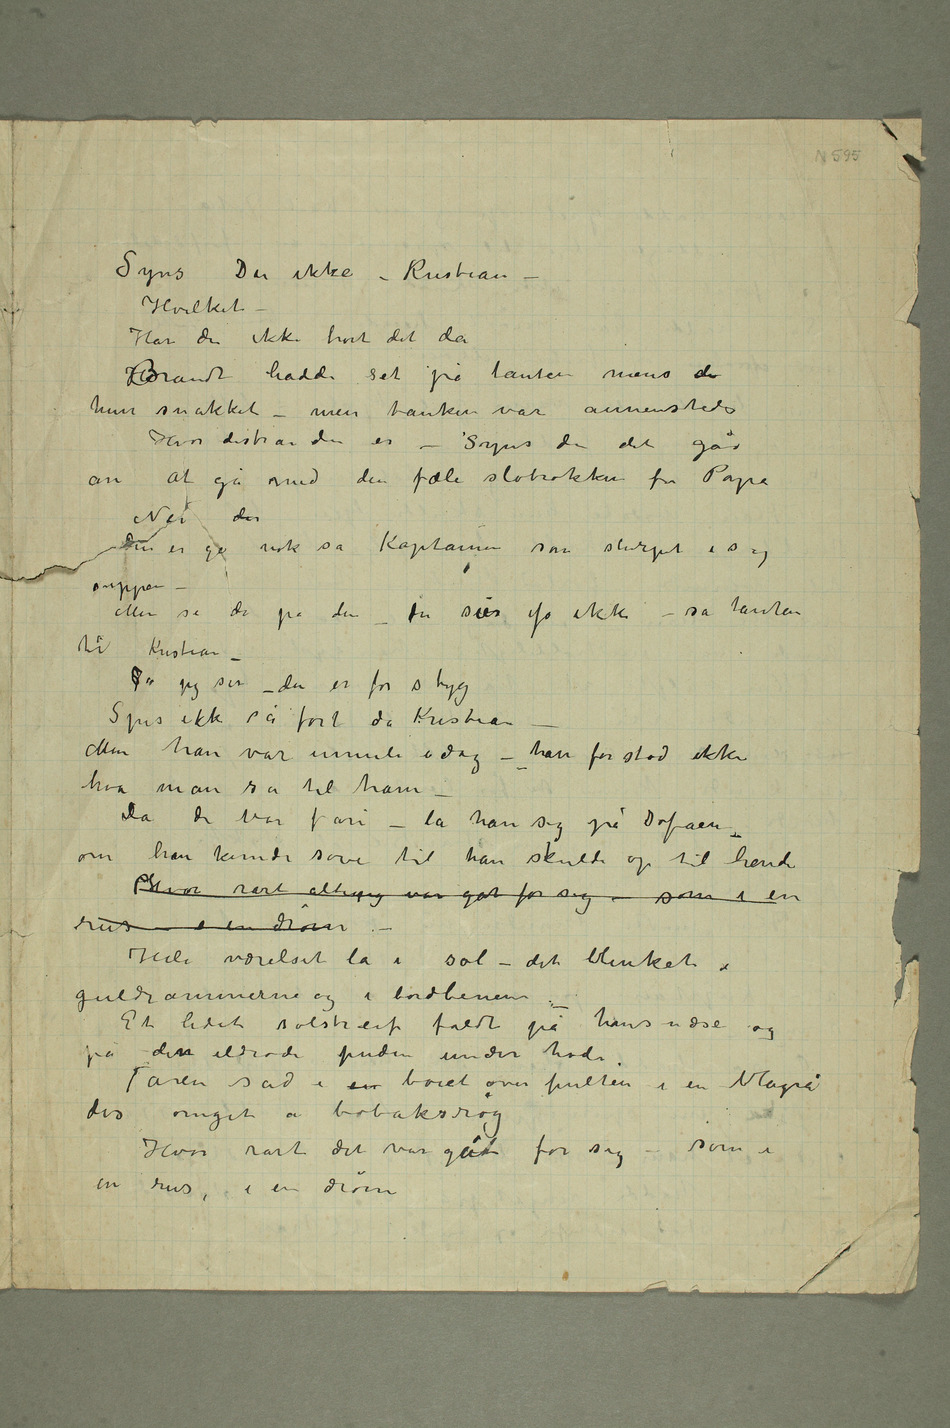 N 595
Syns Du ikke – Kristian –
Hvilket –
Har du ikke hørt det da
Brandt hadde set på tanten mens du
hun snakket – men tanken var annensteds
Hvor distrai du er – Syns du det går
an at gå med den fæle slobrokken for Papa
Nei der
Du er go nok sa Kaptainen som slurpet i sig
suppen –
Men se da på den – Du seer jo ikke – sa tanten
til Kristian –
Jo jeg ser – den er for styg
Spis ikke så fort da Kristian –
Men han var umuli idag – han forstod ikke
hva man sa til ham –
Da de var færi – la han sig på Sofaen –
om han kunde sove til han skulde op til hende
Hvor rart alting var gåt for sig – som i en
rus – i en drøm –
Hele værelset lå i sol – det blinket i
guldrammerne og i bordbenene –
Et lidet solstreif faldt på hans næse og
på den ildrøde puden under hode.
Faren sad i en bøiet over pulten i en blågrå
dis omget a tobaksrøg
Hvor rart det var gåt for sig – som i
en rus, i en drøm